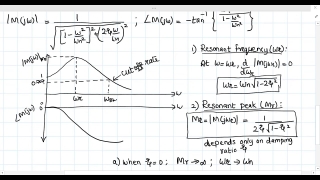 |M(jω)| = 1 / √([1 - ω²/ωn²]² + (2ξω/ωn)²) ; ∠M(jω) = -tan⁻¹ { / 1 - ω²/ωn² }
|M(jω)|
Mr
1
0.707
cut off rate
ωr
ωb
ω
∠M(jω)
0
ω
1) Resonant frequency (ωr):
At ω = ωr, d/dωr |M(jωr)| = 0
ωr = ωn √(1-2ξ²)
2) Resonant peak (Mr):
Mr = |M(jω)| = 1 / 2ξ√(1-ξ²)
depends only on damping
ratio ξ
a) When ξ = 0 ; Mr → ∞ ; ωr → ωn